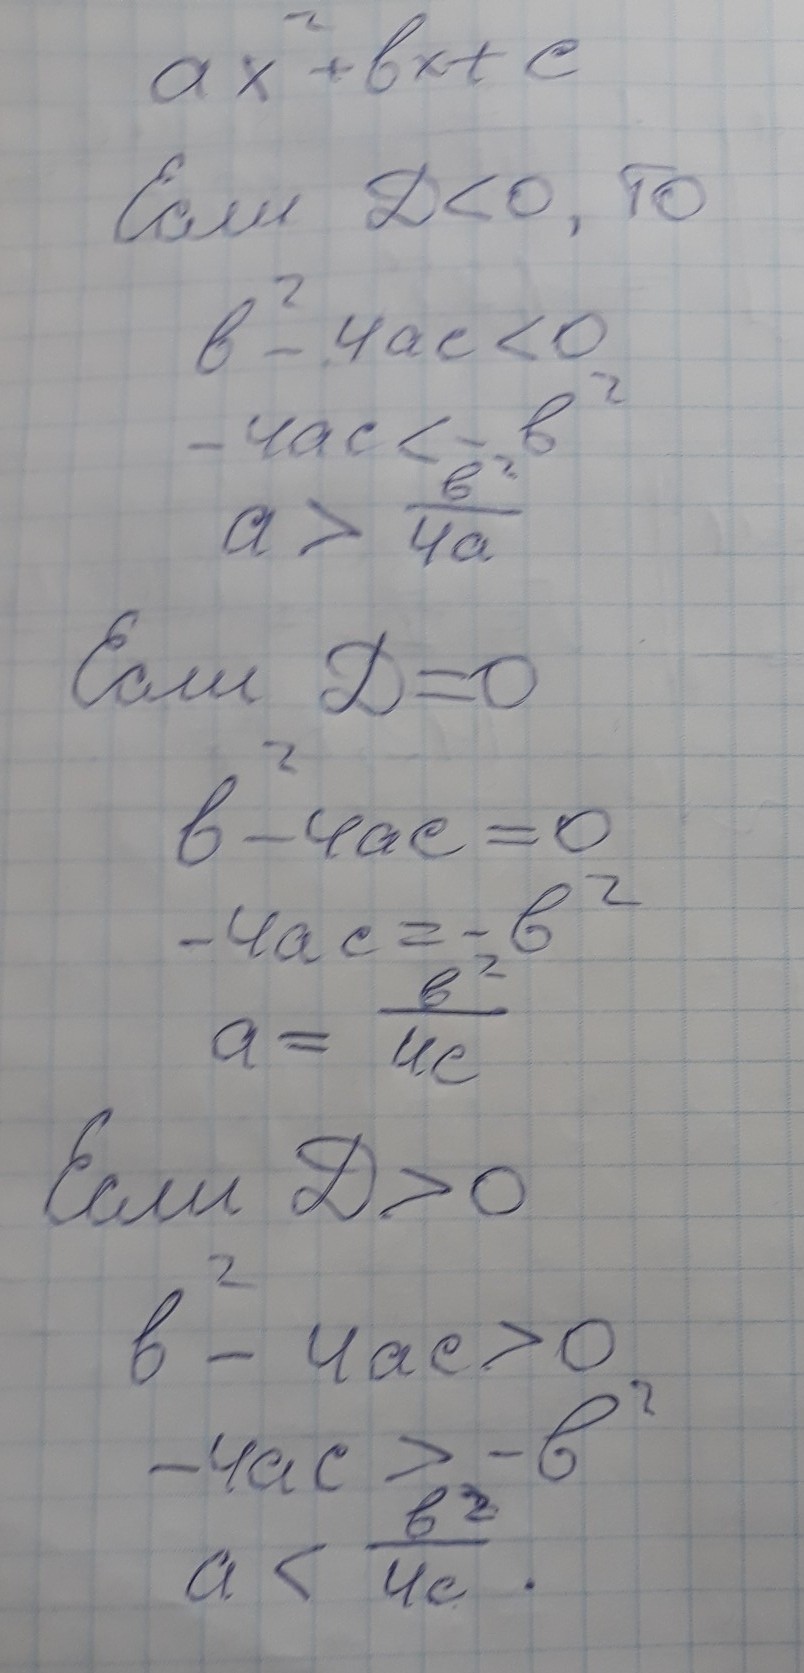 ax² + bx + c
Если D < 0, то
b² - 4ac < 0
-4ac < -b²
a > b²/4a
Если D = 0
b² - 4ac = 0
-4ac = -b²
a = b²/4c
Если D > 0
b² - 4ac > 0
-4ac > -b²
a < b²/4c.